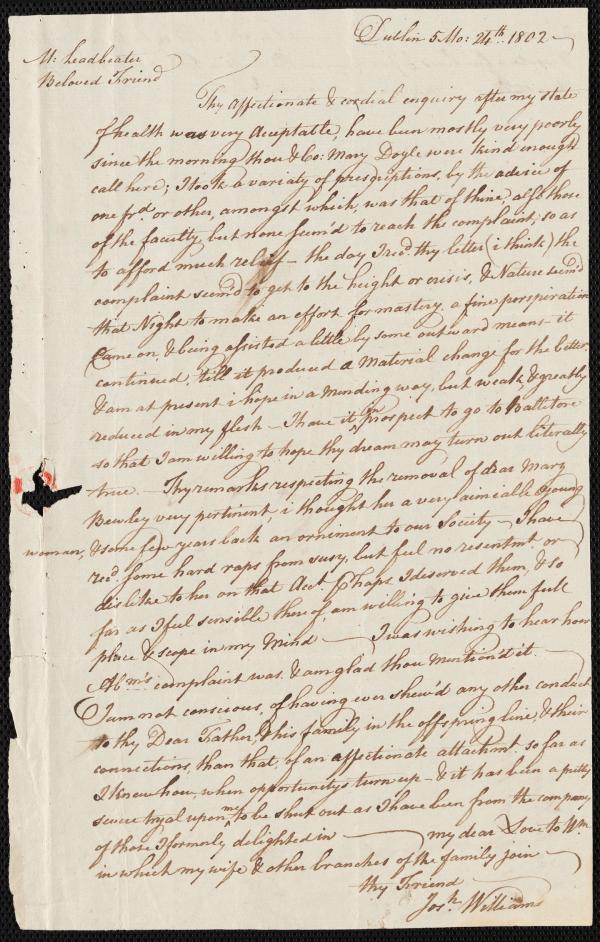 Dublin 5 Mo: 24th. 1802
M: Leadbeater
Beloved Friend
Thy affectionate & cordial enquiry after my state
of health was very Aceptable, have been mostly very poorly
since the morning thou & Co: Mary Doyle were kind enough
call here; I took a variaty of presdcriptions, by the advice of
one frd. or other, amongst which, was that of thine, also those
of the faculty, but none seem'd to reach the complaint, so as
to afford much relief - the day I recd. thy letter (i think) the
complaint seem'd to get to the height or crisis, & Nature seem'd
that Night to make an effort for mastery. a fine perspiration
Came on, & being assisted a little by some outward means - it
continued, till it produced a Material change for the better.
& am at present i hope in a mending way, but weak & greatly
reduced in my flesh - I have it in prospect to go to Ballitore
so that I am willing to hope thy dream may turn out literally
true. - Thy remarks respecting the removal of dear Mary
Bewley very pertinent, i thought her a very aimeable young
woman, & some few years back an orniment to our Society - I have
recd. some hard raps from susy, but feel no resentmt. or
dislike to her on that Acct. Phaps I deserved them, & so
far as I feel sensible thereof, am willing to give them full
place & scope in my Mind - I was wishing to hear how
Abm's complaint was. & am glad thou mention'd it. -
I am not conscious, of having ever shew'd any other conduct
to thy Dear Father, & his family in the offspring line, & their
connections, than that, of an affectionate attachmt. so far as
I knew how, when opportunitys turn up - & it has been a pritty
severe tryal upon me to be shut out as I have been from the company
of those I formerly delighted in - my dear Love to Wm.
in which my wife & other branches of the family join -
thy Friend
Josh. Williams